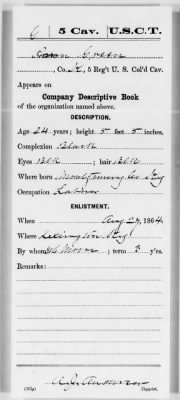 G | 5 Cav. | U.S.C.T.
Aaron Green
, Co. K, 5 Reg't U. S. Col'd Cav.
Appears on
Company Descriptive Book
of the organization named above.
DESCRIPTION.
Age 24 years; height 5 feet 5 inches.
Complexion Black
Eyes Blk ; hair Blk
Where born Montgomery Co Ky
Occupation Laborer
ENLISTMENT.
When Aug 24, 1864.
Where Lexington Ky
By whom Moore; term 3 y'rs.
Remarks:
(383g) Copyist.